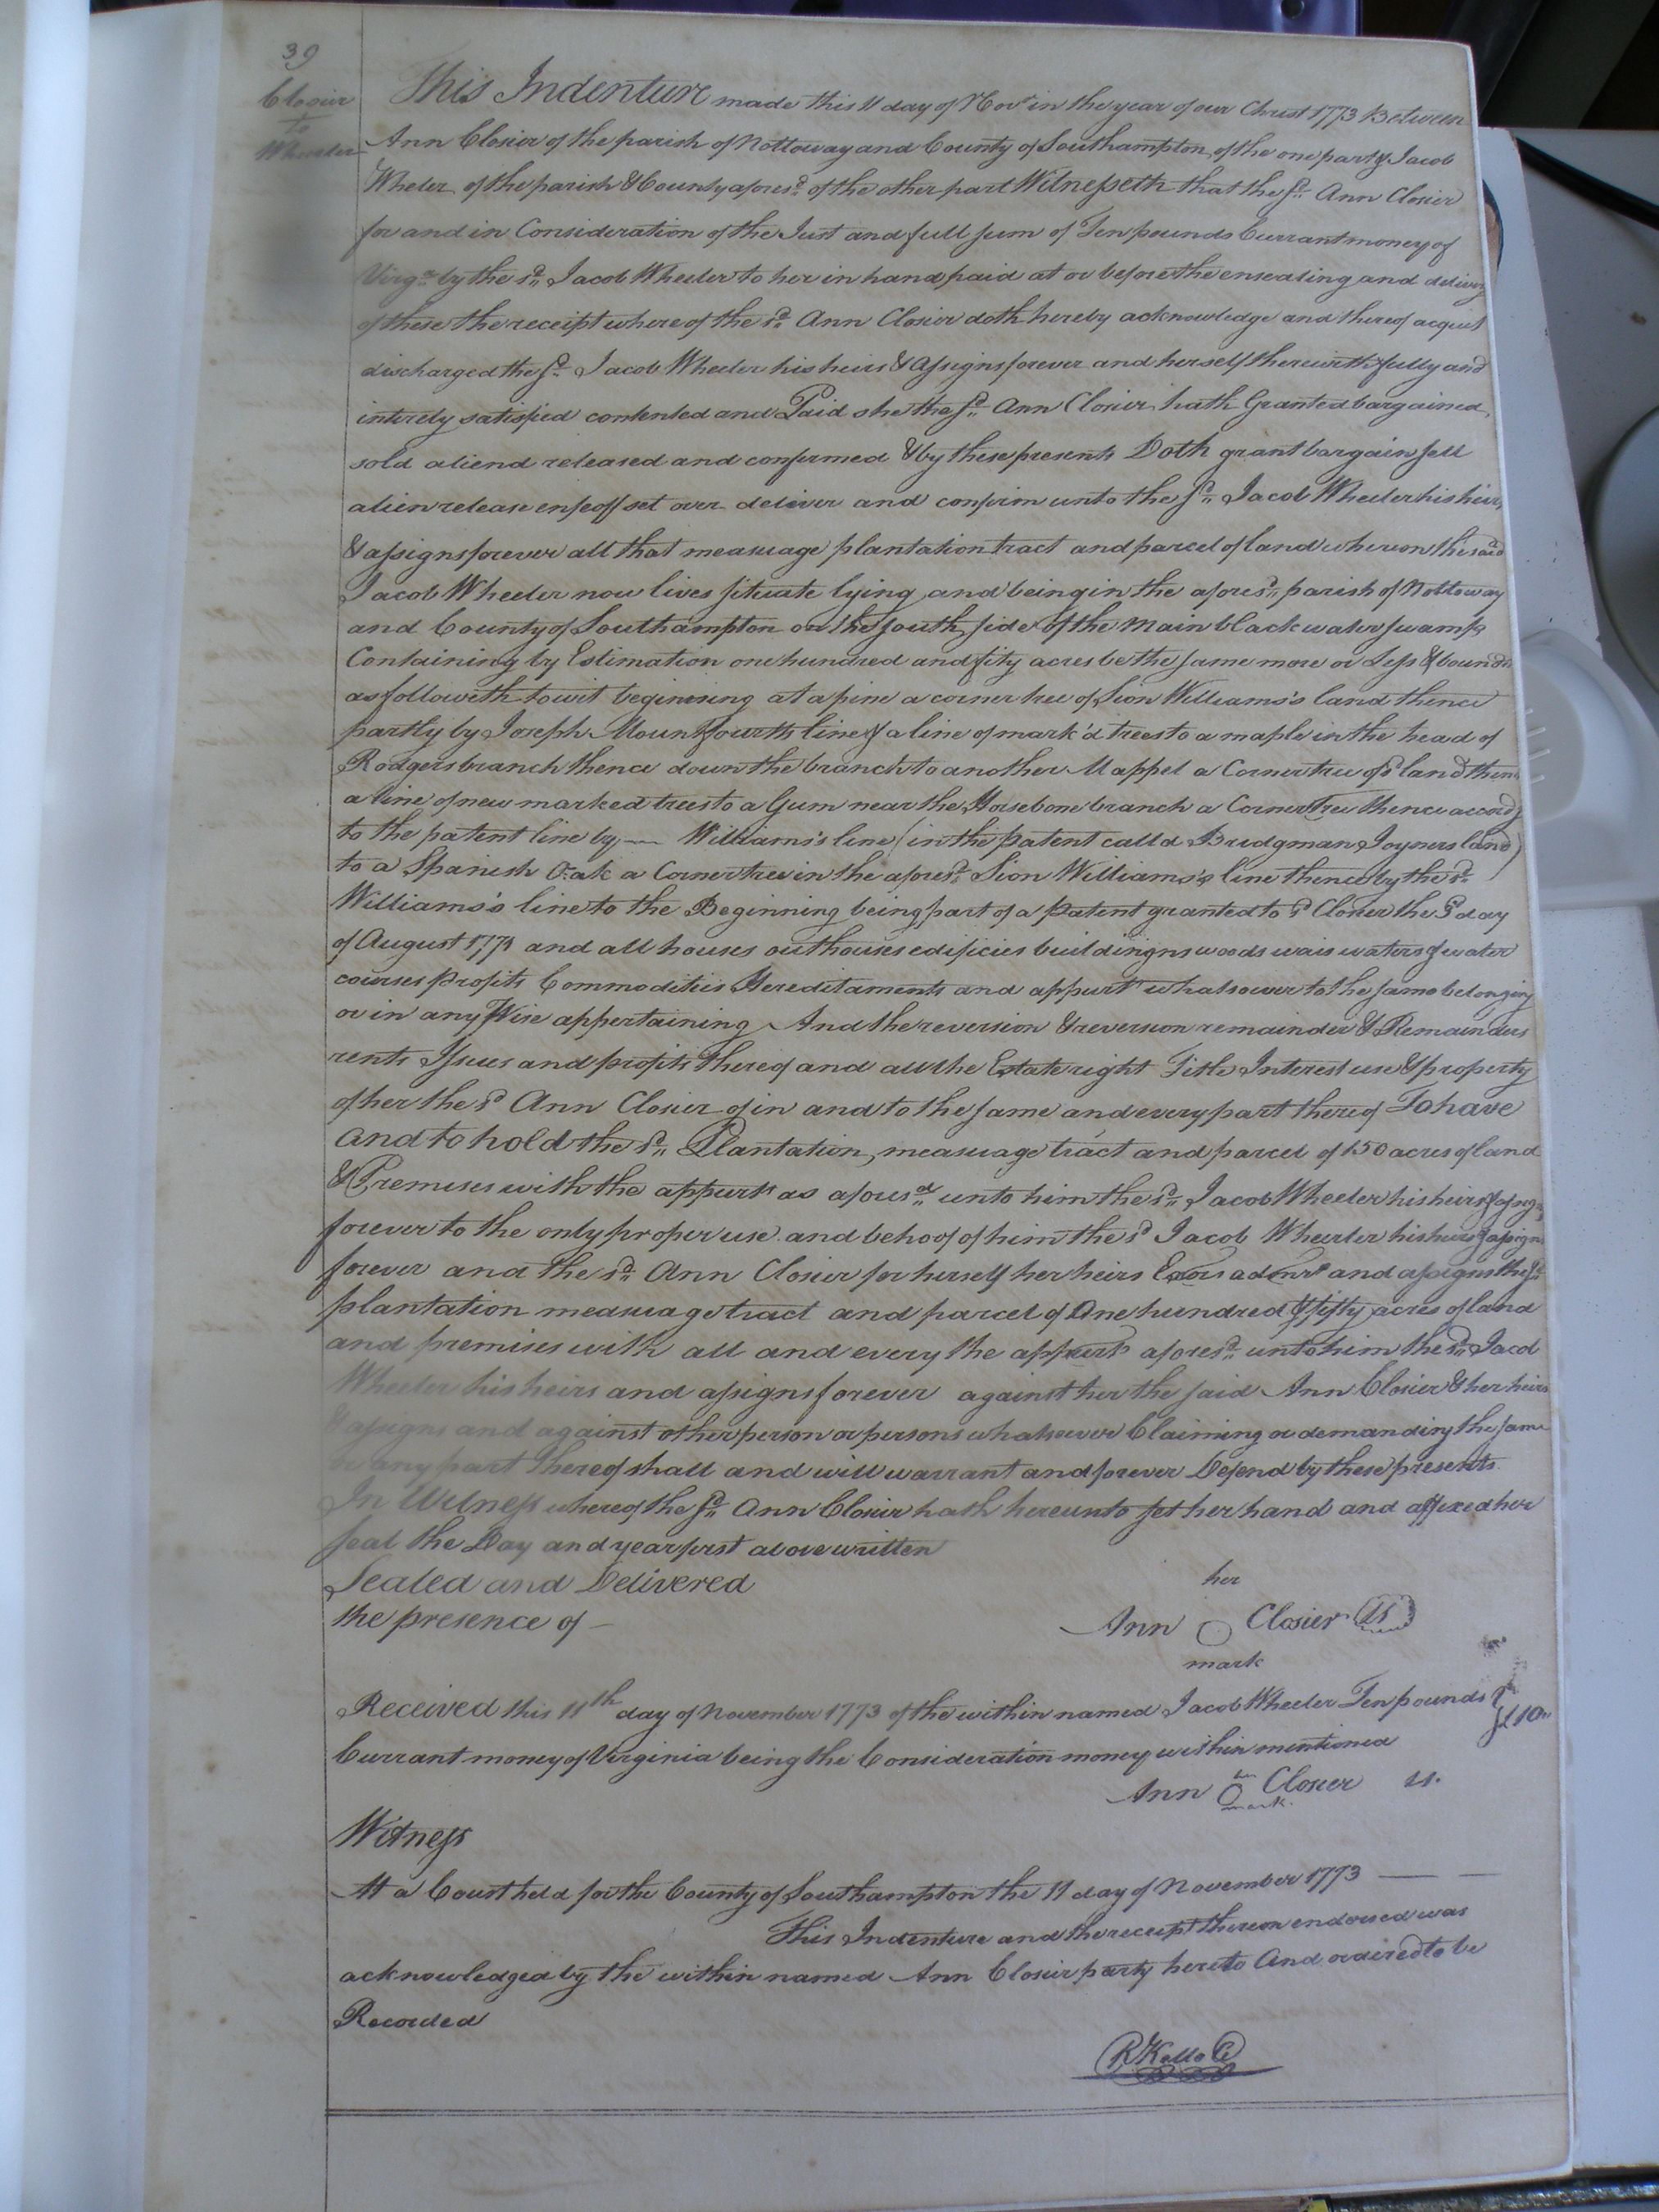 39
Closier
to
Wheeler
This Indenture made this 11 day of Nov.r in the year of our Christ 1773 Between
Ann Closier of the parish of Nottoway and County of Southampton of the one part & Jacob
Wheler of the parish & County afores.d of the other part Witnesseth that the s.d Ann Closier
for and in Consideration of the Just and full sum of Ten pounds Currant money of
Virg.a by the s.d Jacob Wheeler to her in hand paid at or before the ensealing and delivery
of these the receipt whereof the s.d Ann Closier doth hereby acknowledge and thereof acquit
discharged the s.d Jacob Wheeler his heirs & assigns forever and herself therewith fully and
intirely satisfied contented and Paid she the s.d Ann Closier hath Granted bargained
sold aliend released and confirmed & by these presents Doth grant bargain sell
alien release enfeoff set over deliver and confirm unto the s.d Jacob Wheeler his heirs
& assigns forever all that measuage plantation tract and parcel of land whereon the said
Jacob Wheeler now lives situate lying and being in the afores.d parish of Nottoway
and County of Southampton on the south side of the main black water swamp
Containing by Estimation one hundred and fity acres be the same more or Less & bounds
as followeth to wit begining at a pine a corner tree of Sion Williams's land thence
partly by Joseph Mount fourths line & a line of mark'd trees to a maple in the head of
Rodgers branch thence down the branch to another Mappel a Corner tree of s.d land then
a line of new marked trees to a Gum near the Horsebone branch a Corner Tree thence accord.g
to the patent line by — Williams's line (in the patent calld Bridgman Joyners land)
to a Spanish Oak a Corner tree in the afores.d Sion Williams's line thence by the s.d
Williams's line to the Beginning being part of a patent granted to s.d Closier the 3.d day
of August 1771 and all houses outhouses edificies buildingns woods wais waters & water
courses profits Commodities Hereditaments and appurt.s whatsoever to the same belonging
or in any Wise appertaining And the reversion & reversion remainder & Remainders
rents Issues and profits thereof and all the Estate right Title Interest use & property
of her the s.d Ann Closier of in and to the same and every part thereof To have
and to hold the s.d Plantation, measuage tract and parcel of 150 acres of land
& Premises with the appurts as afores.d unto him the s.d Jacob Wheeler his heirs & assigns
forever to the only proper use and behoof of him the s.d Jacob Wheeler his heirs & assigns
forever and the s.d Ann Closier for herself her heirs Exors admrs and assigns the s.d
plantation measuage tract and parcel of One hundred & fifty acres of land
and premises with all and every the appurts afores.d unto him the s.d Jacob
Wheeler his heirs and assigns forever against her the said Ann Closier & her heirs
& assigns and against other person or persons whatsoever Claiming or demanding the same
or any part thereof shall and will warrant and forever Defend by these presents
In Witness whereof the s.d Ann Closier hath hereunto set her hand and affixed her
seal the Day and year first above written
Sealed and Delivered
the presence of —
her
Ann O Closier LS
mark
Received this 11th day of November 1773 of the within named Jacob Wheeler Ten pounds
£10
Currant money of Virginia being the Consideration money within mentioned
her
Ann O Closier LS.
mark.
Witness
At a Court held for the County of Southampton the 11 day of November 1773 — —
This Indenture and the receipt thereon endorsed was
acknowledged by the within named Ann Closier party hereto And ordered to be
Recorded
R Kello C